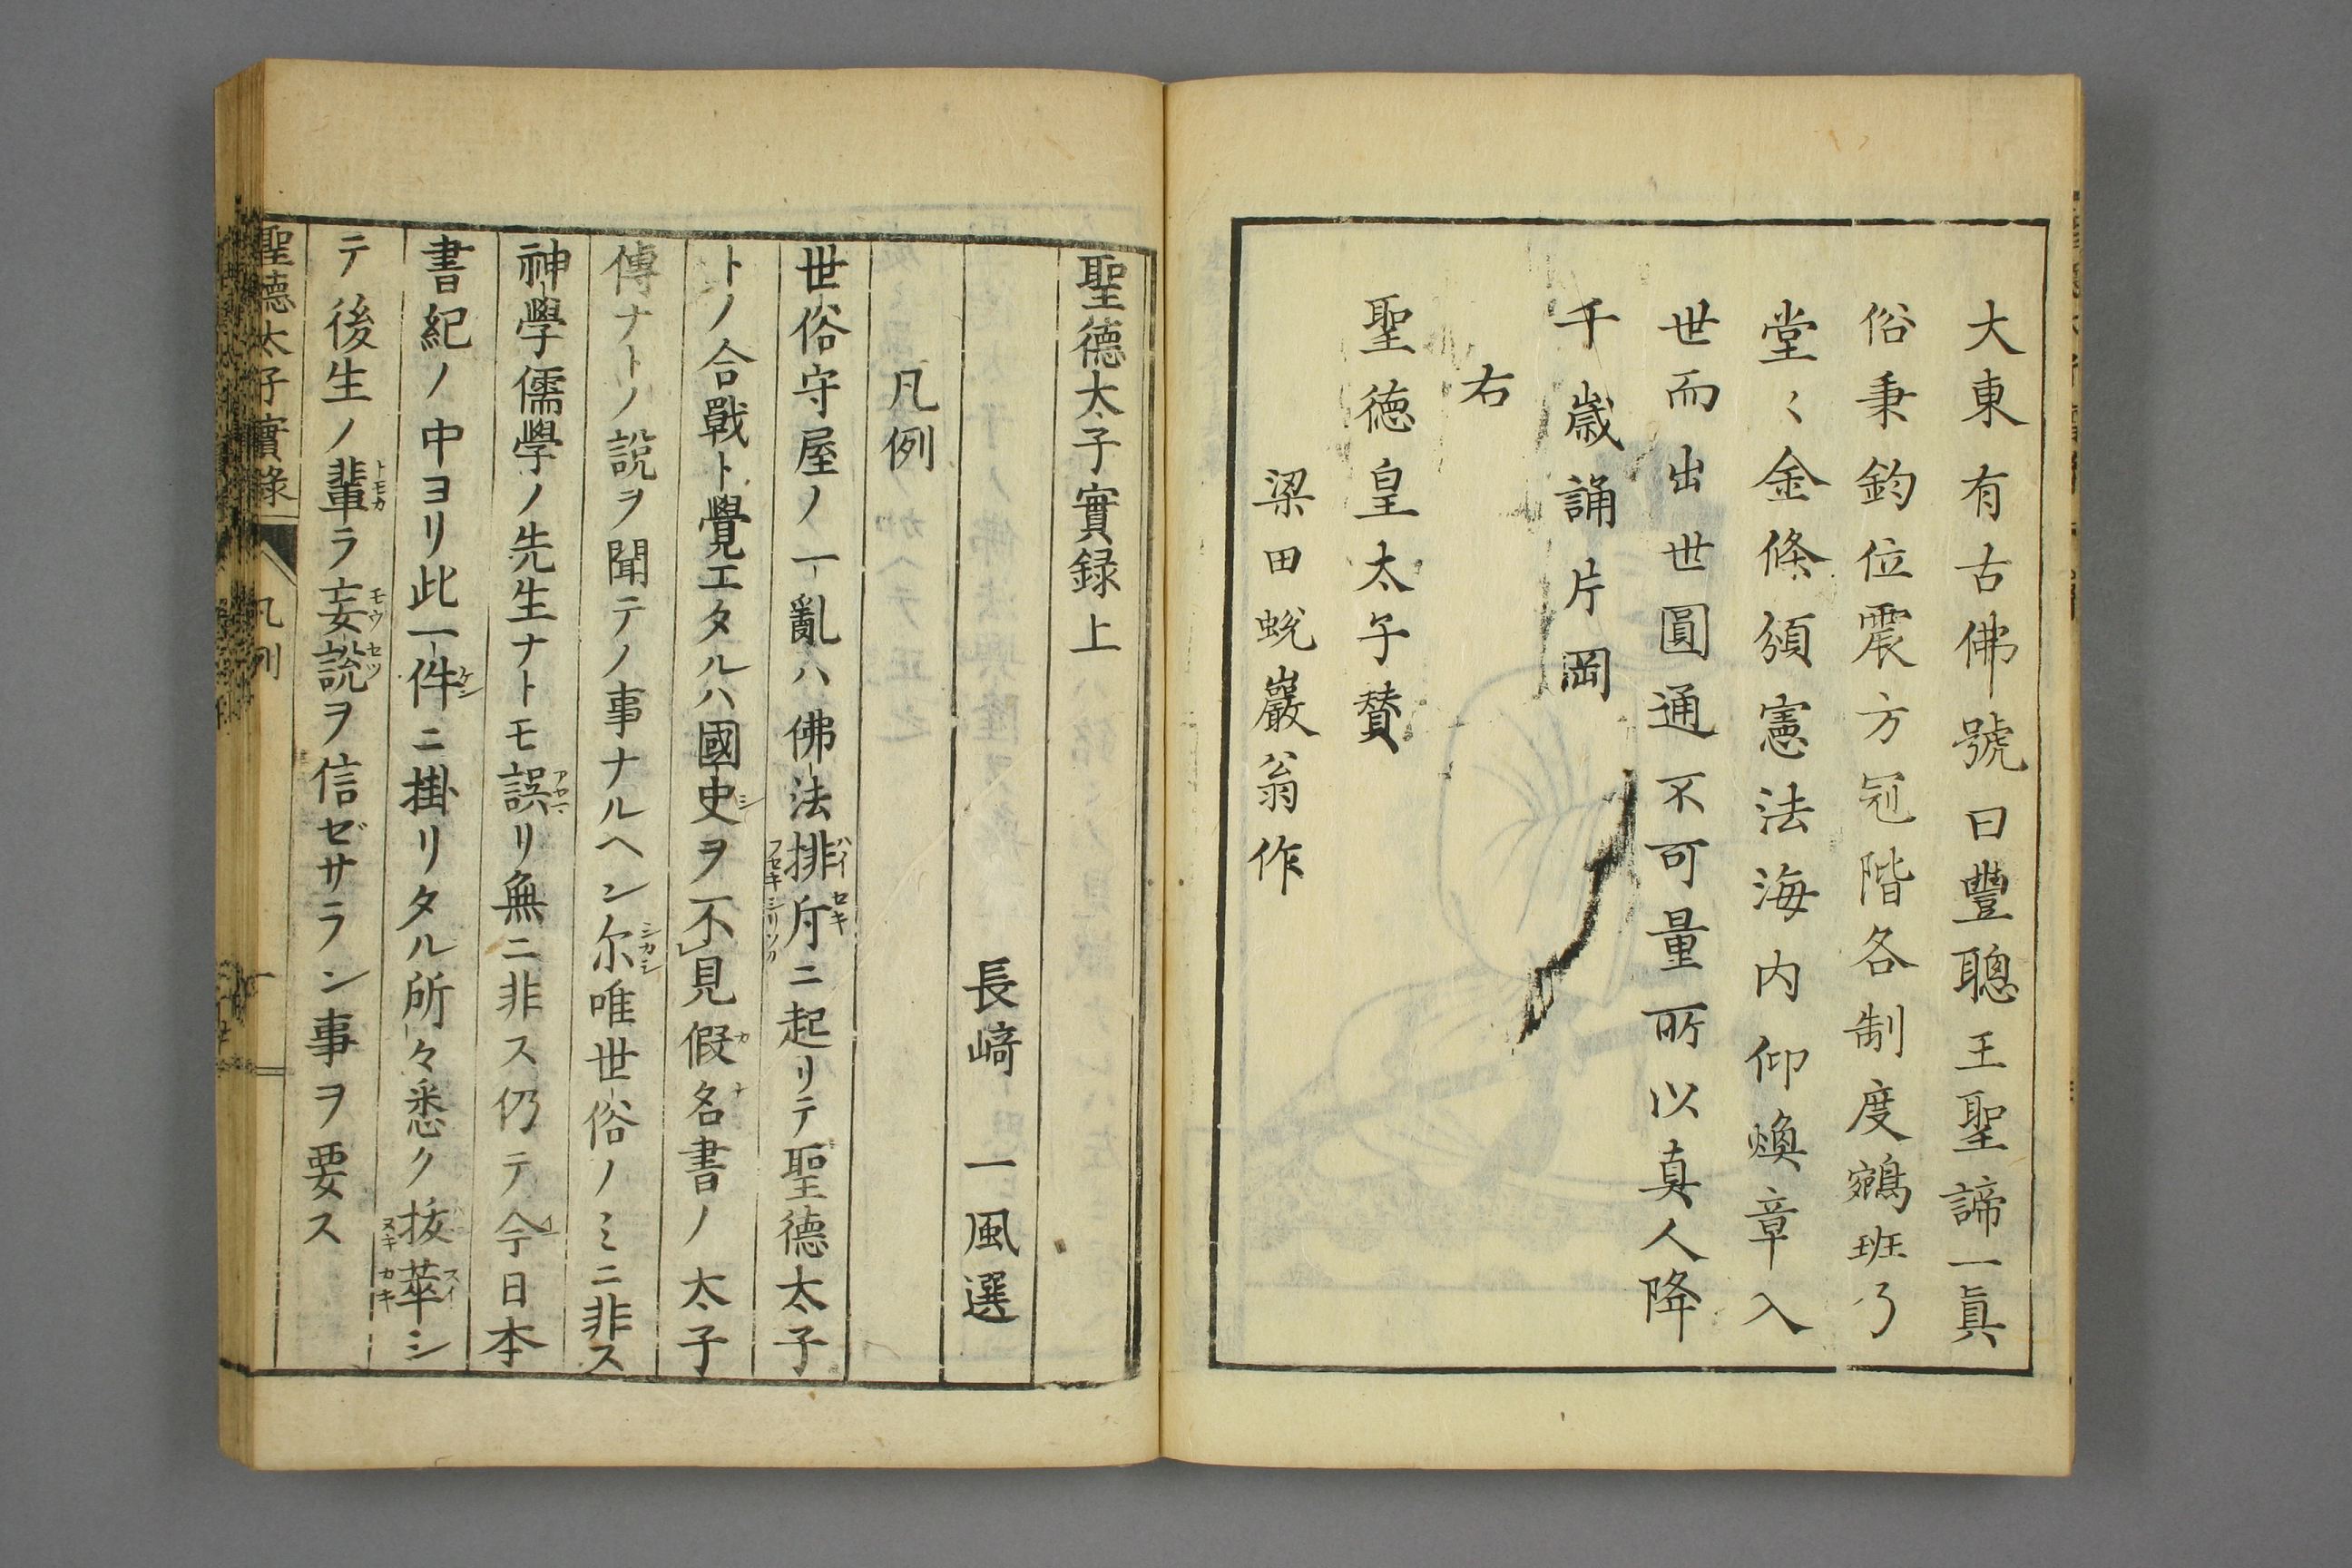 大東有古佛號曰豐聰王聖諦一眞
俗秉鈞位震方冠階各制度鵷班乃
堂〻金條頒憲法海内仰煥章入
世而出世圓通不可量所以真人降
千歳誦片岡
右
聖徳皇太子賛
梁田蛻巖翁作
聖德太子實録上
長﨑 一風選
凡例
世俗守屋ノ一亂ハ佛法排斥ニ起リテ聖德太子
トノ合戰ト覺エタルハ國史ヲ不見假名書ノ太子
傳ナトノ説ヲ聞テノ事ナルヘシ尓唯世俗ノミニ非ス
神學儒學ノ先生ナトモ誤リ無ニ非ス仍テ今日本
書紀ノ中ヨリ此一件ニ掛リタル所々悉ク抜萃シ
テ後生ノ輩ラ妄説ヲ信ゼサラン事ヲ要ス
聖德太子實錄 凡例